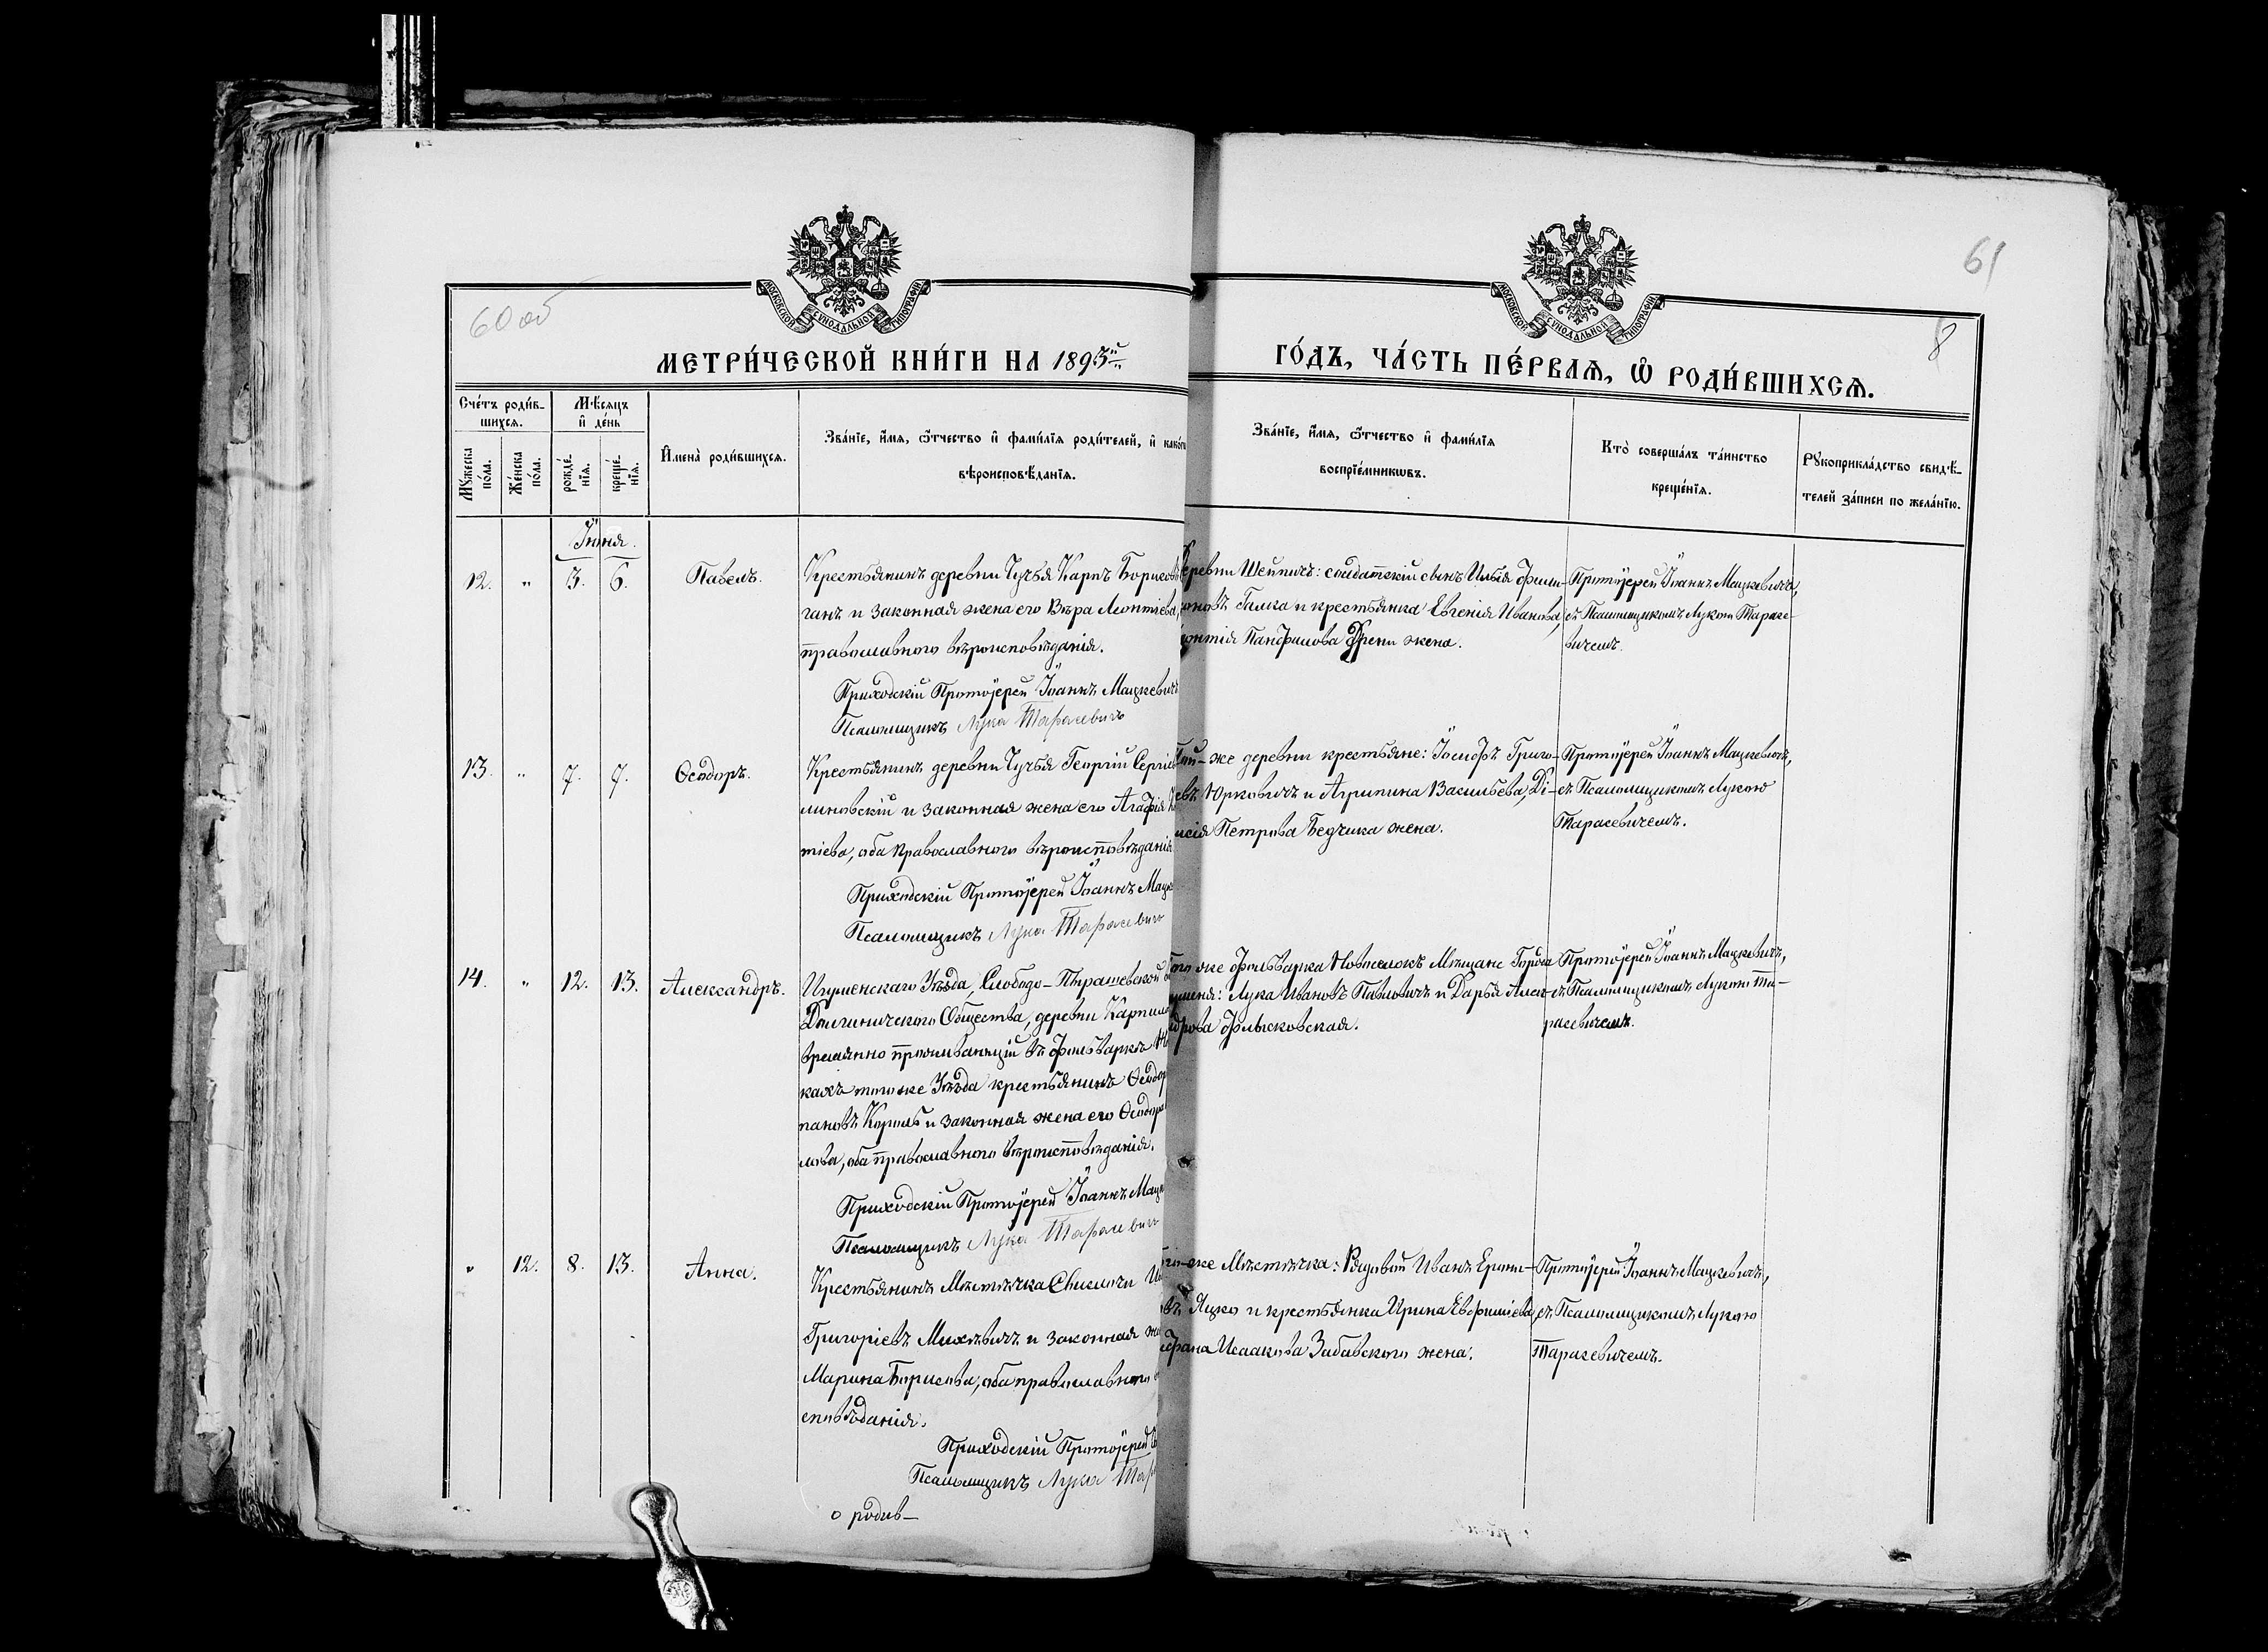 61
60 об
8
МОСКОВСКОЙ СѴНОДАЛЬНОЙ ТИПОГРАФІИ
МОСКОВСКОЙ СѴНОДАЛЬНОЙ ТИПОГРАФІИ
МЕТРИ́ЧЕСКОЙ КНИ́ГИ НА 1893й
ГО́ДЪ, ЧА́СТЬ ПЕ́РВАѦ, Ѡ҆ РОДИ́ВШИХСѦ.
Сче́тъ роди́в-
шихсѧ.
Мѣ́сяцъ
и҆ де́нь
Мꙋ́жеска
по́ла.
Же́нска
по́ла.
рожде́-
нїѧ.
креще́-
нїѧ.
И҆мена̀ роди́вшихсѧ.
Зва́нїе, и҆́мѧ, ѻ҆́тчество и҆ фами́лїѧ роди́телей, и҆ како́гѡ
вѣроисповѣ́данїѧ.
Зва́нїе, и҆́мѧ, ѻ҆́тчество и҆ фами́лїѧ
воспрїе́мникѡвъ.
Кто̀ соверша́лъ та́инство
креще́нїѧ.
Рꙋкоприкла́дство свидѣ́-
телей за́писи по жела́нїю.
Іюня.
12. " 3. 6. Павелъ.
Крестьянинъ деревни Чучья Карпъ Борисовъ
ганъ и законная жена его Вѣра Леонтіева,
православнаго вѣроисповѣданія.
Приходскій Протоіерей Іоаннъ Мацкевичъ
Псаломщикъ Лука Тарасевичъ
деревни Шейпичъ: солдатскій сынъ Илья Фили-
моновъ Галка и крестьянка Евгенія Иванова,
Панфилова жена.
Протоіерей Іоаннъ Мацкевичъ,
съ Псаломщикомъ Лукою Тарасе-
вичемъ.
13. " 7. 7. Ѳеодоръ.
Крестьянинъ деревни Чучья Георгій Сергіев
линовскій и законная жена его Агафія
тіева, оба православнаго вѣроисповѣданія.
Приходскій Протоіерей Іоаннъ Мацк
Псаломщикъ Лука Тарасевичъ
Той-же деревни крестьяне: Іосифъ Григо-
евъ Юрковичъ и Агрипина Васильева, Ді-
исія Петрова Бедчика жена.
Протоіерей Іоаннъ Мацкевичъ,
съ Псаломщикомъ Лукою
Тарасевичемъ.
14. " 12. 13. Александръ.
Игуменскаго Уѣзда, Слободо-Пырашевской
Долгиничскаго Общества, деревни
временно проживающій въ фольваркѣ
кахъ того-же Уѣзда крестьянинъ Ѳеодор
пановъ Король и законная жена его Ѳеодора
лова, оба православнаго вѣроисповѣданія.
Приходскій Протоіерей Іоаннъ Мацк
Псаломщикъ Лука Тарасевичъ
того же фольварка Новоселокъ Мѣщане Города
Игуменя: Лука Ивановъ Павловичъ и Дарья Алек-
дрова
Протоіерей Іоаннъ Мацкевичъ,
съ Псаломщикомъ Лукою Та-
расевичемъ.
" 12. 8. 13. Анна.
Крестьянинъ Мѣстечка Свислочи
Григоріевъ Михневичъ и законная же
Марина Борисова, оба православнаго
сповѣданія.
Приходскій Протоіерей
Псаломщикъ Лука Тар
того-же Мѣстечка: Рядовой Иванъ
въ Яцко и крестьянка Ирина Евфиміева,
Исаакова Забавскаго жена.
Протоіерей Іоаннъ Мацкевичъ,
съ Псаломщикомъ Лукою
Тарасевичемъ.
о родив-